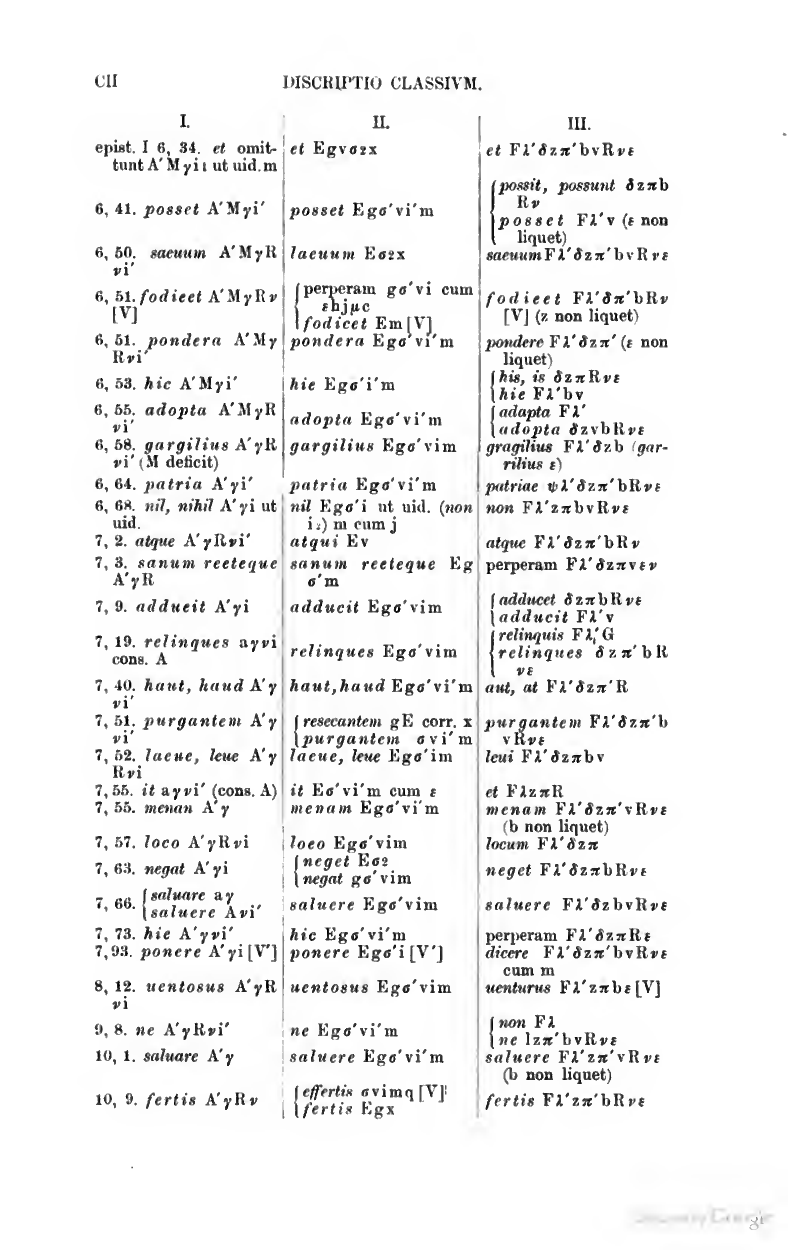 CII DISCRIPTIO CLASSIVM.
I. II. III.
epist. I 6, 34. et omit- et Egvσ2x et Fλ'δzπ'bvRνε
tunt A'Mγiι ut uid. m
{possit, possunt δzπb
Rν
6, 41. posset A'Mγi' posset Egσ'vi'm posset Fλ'v (ε non
liquet)
6, 50. saeuum A'MγR laeuum Eσ2x saeuum Fλ'δzπ'bvRνε
νi'
6, 51. fodieet A'MγRν {perperam gσ'vi cum fodieet Fλ'δπ'bRν
[V] εhjμc [V] (z non liquet)
fodicet Em[V]
6, 51. pondera A'Mγ pondera Egσ'vi'm pondere Fλ'δzπ' (ε non
Rνi' liquet)
6, 53. hic A'Mγi' hie Egσ'i'm {his, is δzπRνε
hie Fλ'bv
6, 55. adopta A'MγR adopta Egσ'vi'm {adapta Fλ'
νi' adopta δzvbRνε
6, 58. gargilius A'γR gargilius Egσ'vim gragilius Fλ'δzb (gar-
νi' (M deficit) rilius ε)
6, 64. patria A'γi' patria Egσ'vi'm patriae ψλ'δzπ'bRνε
6, 68. nil, nihil A'γi ut nil Egσ'i ut uid. (non non Fλ'zπbvRνε
uid. i2) m cum j
7, 2. atque A'γRνi' atqui Ev atque Fλ'δzπ'bRν
7, 3. sanum reeteque sanum reeteque Eg perperam Fλ'δzπvεν
A'γR σ'm
7, 9. addueit A'γi adducit Egσ'vim {adducet δzπbRνε
adducit Fλ'v
7, 19. relinques aγνi relinques Egσ'vim {relinquis Fλ,'G
cons. A relinques δzπ'bR
νε
7, 40. haut, haud A'γ haut, haud Egσ'vi'm aut, at Fλ'δzπ'R
νi'
7, 51. purgantem A'γ {resecantem gE corr. x purgantem Fλ'δzπ'b
νi' purgantem σvi'm vRνε
7, 52. laeue, leue A'γ laeue, leue Egσ'im leui Fλ'δzπbv
Rνi
7, 55. it aγνi' (cons. A) it Eσ'vi'm cum ε et FλzπR
7, 55. menan A'γ menam Egσ'vi'm menam Fλ'δzπ'vRνε
(b non liquet)
7, 57. loco A'γRνi loeo Egσ'vim locum Fλ'δzπ
7, 63. negat A'γi {neget Eσ2 neget Fλ'δzπbRνε
negat gσ'vim
7, 66. {saluare aγ saluere Egσ'vim saluere Fλ'δzbvRνε
saluere Aνi'
7, 73. hie A'γνi' hic Egσ'vi'm perperam Fλ'δzπRε
7, 93. ponere A'γi[V'] ponere Egσ'i[V'] dicere Fλ'δzπ'bvRνε
cum m
8, 12. uentosus A'γR uentosus Egσ'vim uenturus Fλ'zπbε[V]
νi
9, 8. ne A'γRνi' ne Egσ'vi'm {non Fλ
ne lzπ'bvRνε
10, 1. saluare A'γ saluere Egσ'vi'm saluere Fλ'zπ'vRνε
(b non liquet)
10, 9. fertis A'γRν {effertis σvimq[V] fertis Fλ'zπ'bRνε
fertis Egx